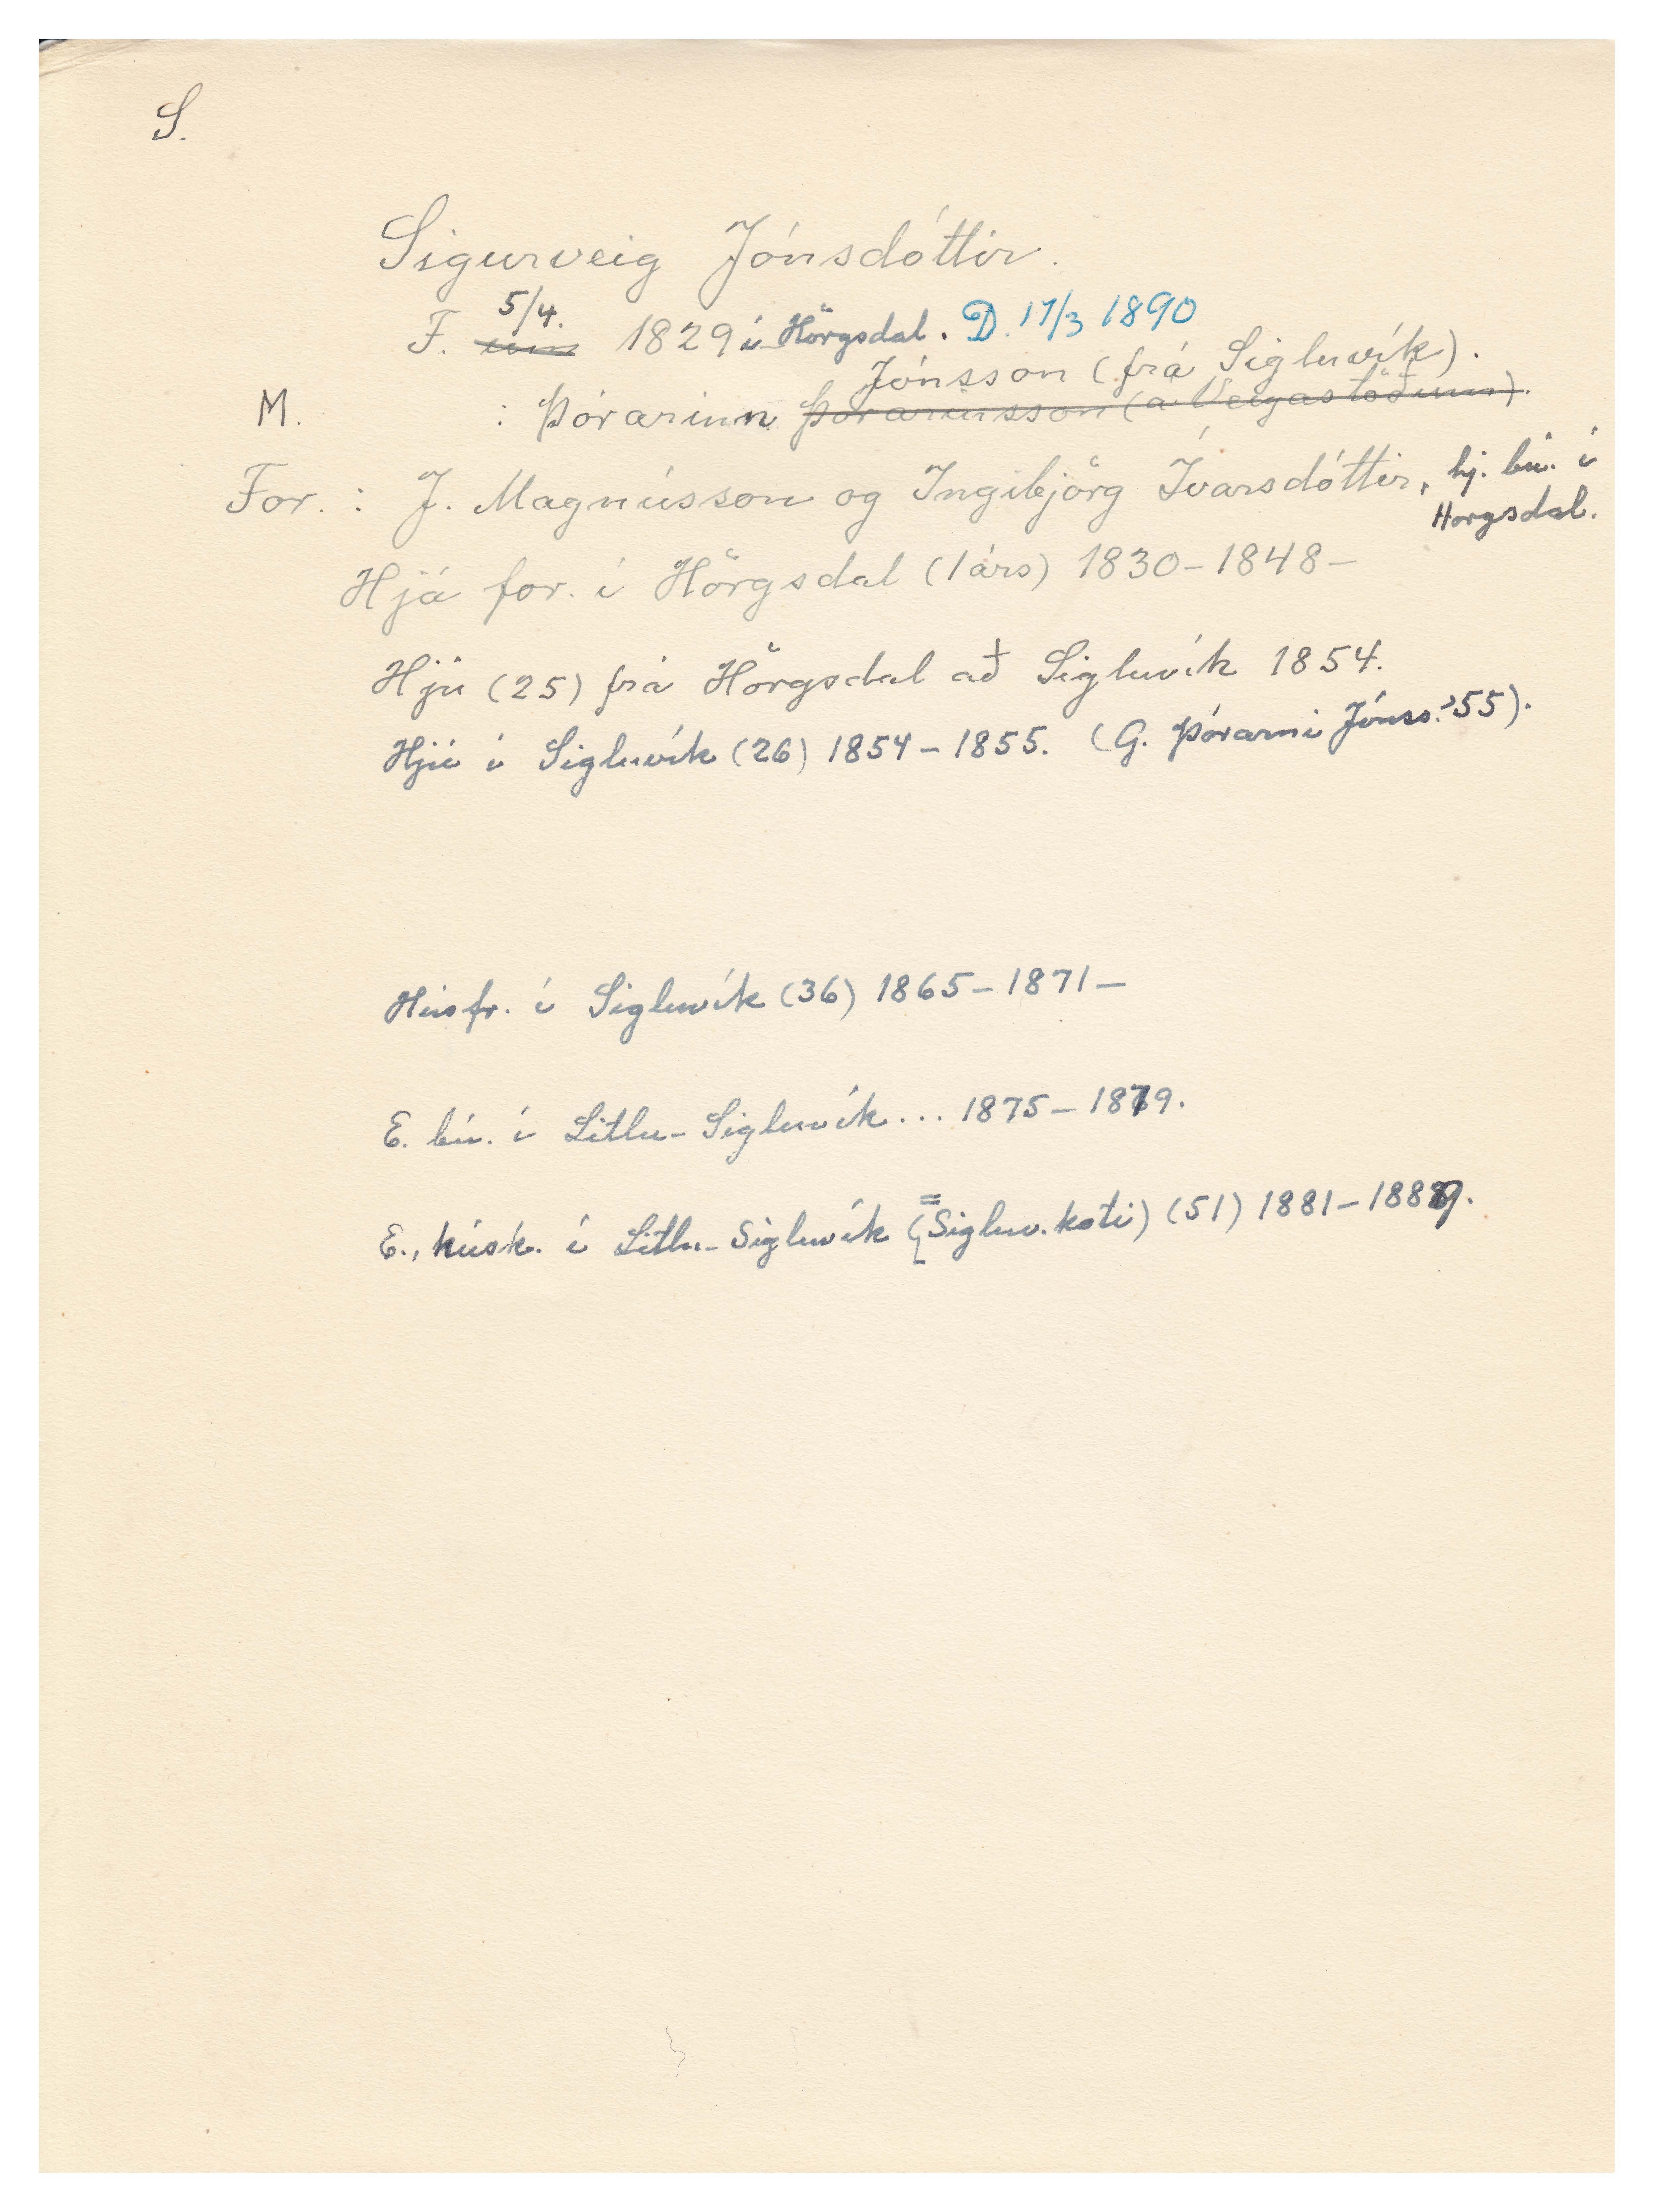 S.
Sigurveig Jónsdóttir.
5/4.
F. um 1829 í Hörgsdal. D. 17/3 1890
Jónsson (frá Sigluvík).
M. : Þórarinn Þórarinsson (á Veigastöðum).
For. : J. Magnússon og Ingibjörg Ívarsdóttir, hj. bú. í
Horgsdal.
Hjá for. í Hörgsdal (1 árs) 1830-1848-
Hjú (25) frá Hörgsdal að Sigluvík 1854.
Hjú í Sigluvík (26) 1854-1855. (G. Þórarni Jónss. '55).
Húsfr. í Sigluvík (36) 1865-1871-
E. bú. í Litlu-Sigluvík... 1875-1879.
E., húsk. í Litlu-Sigluvík (= Sigluv.koti) (51) 1881-1889.